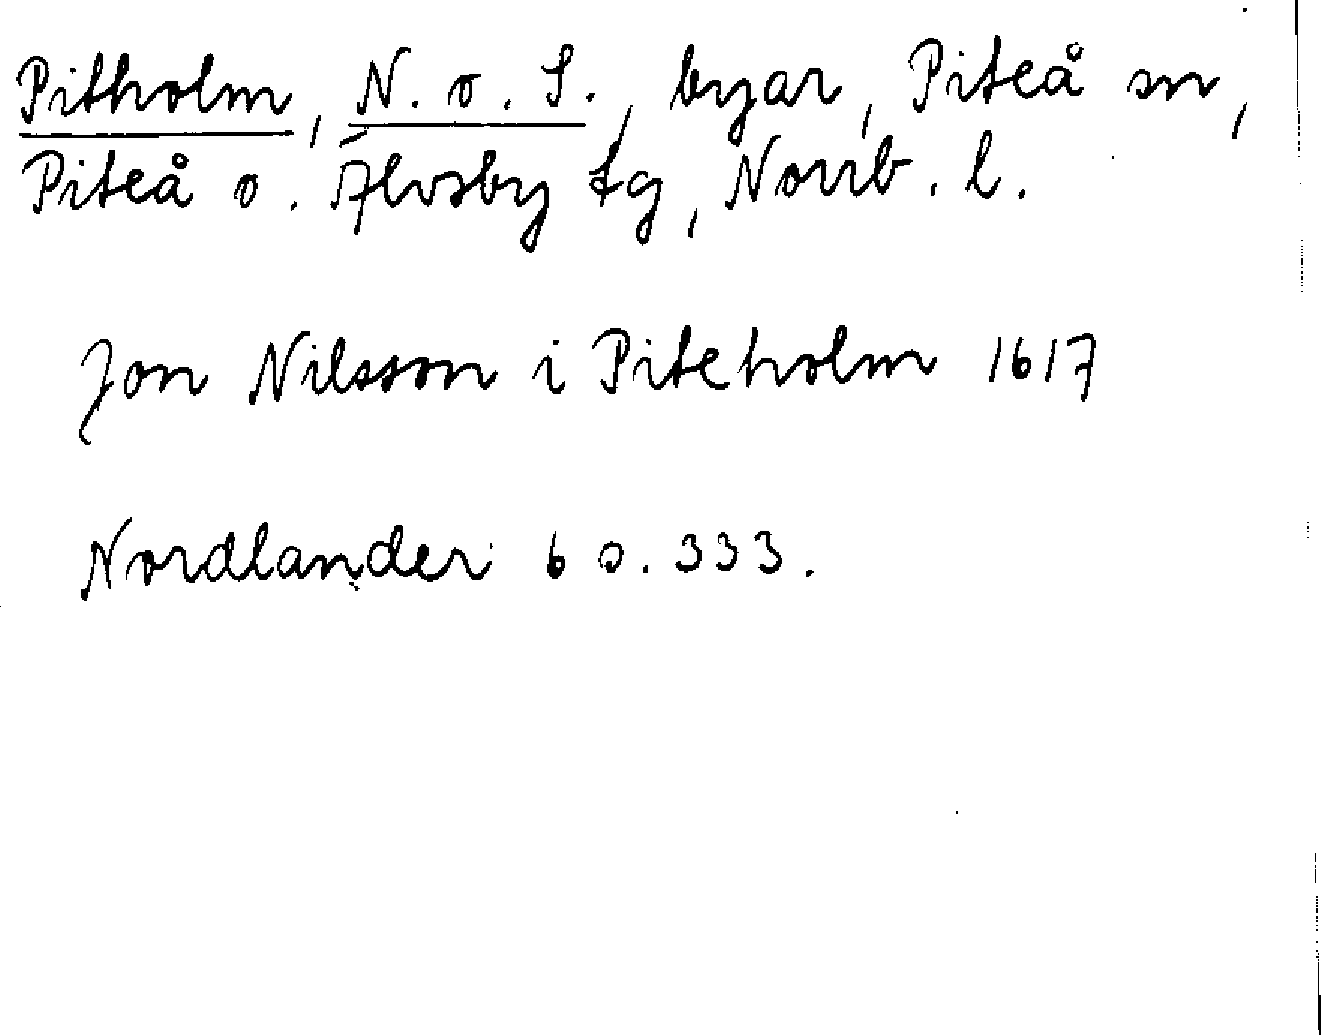 Pitholm, N. o. S., byar, Piteå sn,
Piteå o. Älvsby tg, Norrb. l.
Jon Nilsson i Piteholm 1617
Nordlander: 6 s. 333.